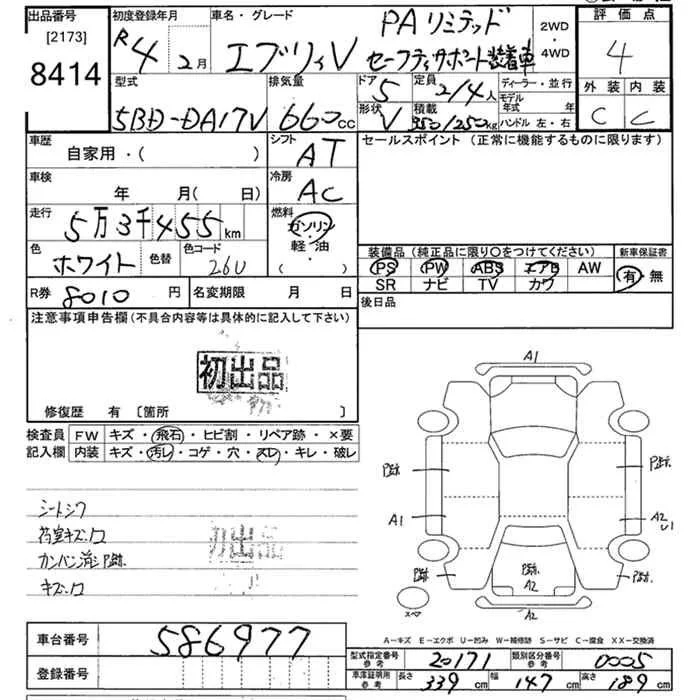 出品番号 初度登録年月 車名・グレード 評価点
[2173] R4 2月 エブリィV PAリミテッド 2WD ・ 4WD 4
8414 セーフティサポート装着車
型式 排気量 ドア 5 定員 2/4人 ディーラー・並行 外装 内装
5BD-DA17V 660cc 形状 V 積載 350/250kg モデル年式 年 ハンドル 左・右 C C
車歴 シフト セールスポイント (正常に機能するものに限ります)
自家用・( ) AT
車検 冷房
年 月(日) AC
走行 燃料
5万3千455km ガソリン・軽油・( )
色 ホワイト 色替 色コード 26U
装備品 (純正品に限り○をつけてください) 新車保証書
PS PW ABS エアB AW 有・無
SR ナビ TV カワ
R券 8010円 名変期限 月 日 後日品
注意事項申告欄(不具合内容等は具体的に記入して下さい)
初出品
修復歴 有 [箇所 ]
検査員記入欄 FW キズ・飛石・ヒビ割・リペア跡・×要
内装 キズ・汚レ・コゲ・穴・スレ・キレ・破レ
シートシワ
初出品
カンバン消シP跡.
A1
P跡. P跡.
A1 A2 U1
P跡. P跡. A2 P跡.
スペア A2
A－キズ E－エクボ U－凹み W－補修跡 S－サビ C－腐食 XX－交換済
車台番号 586977
登録番号
型式指定番号 参考 20171 類別区分番号 参考 0005
車庫証明用 参考 長さ 339cm 幅 147cm 高さ 189cm